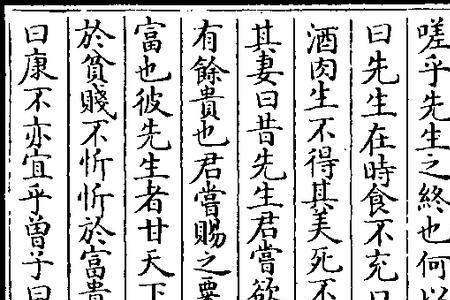 嗟乎先生之終也何以
曰先生在時食不充口
酒肉生不得其美死不
其妻曰昔先生君嘗欲
有餘貴也君嘗賜之粟
富也彼先生者甘天下
於貧賤不忻忻於富貴
曰康不亦宜乎曾子曰